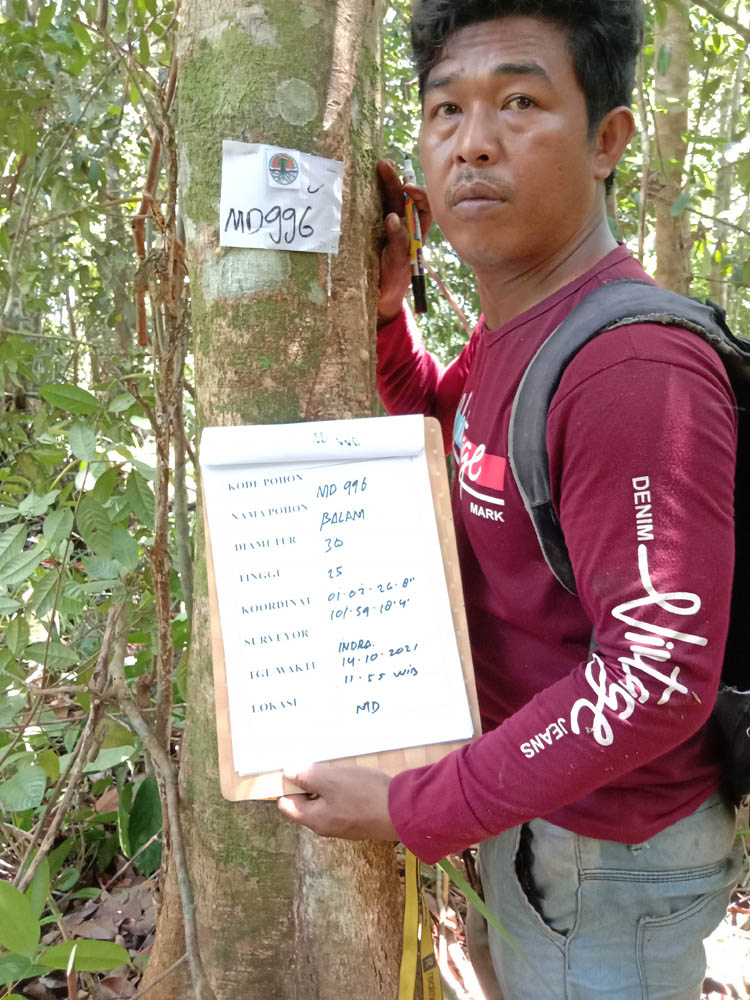 MD996
KODE POHON MD 996
NAMA POHON BALAM
DIAMETER 30
TINGGI 25
KOORDINAT 01·02·26·8"
101·59·18·4"
SURVEYOR INDRA.
TGL WAKTU 14·10·2021
11·55 WIB
LOKASI MD
MARK
DENIM
Vintage
JEANS